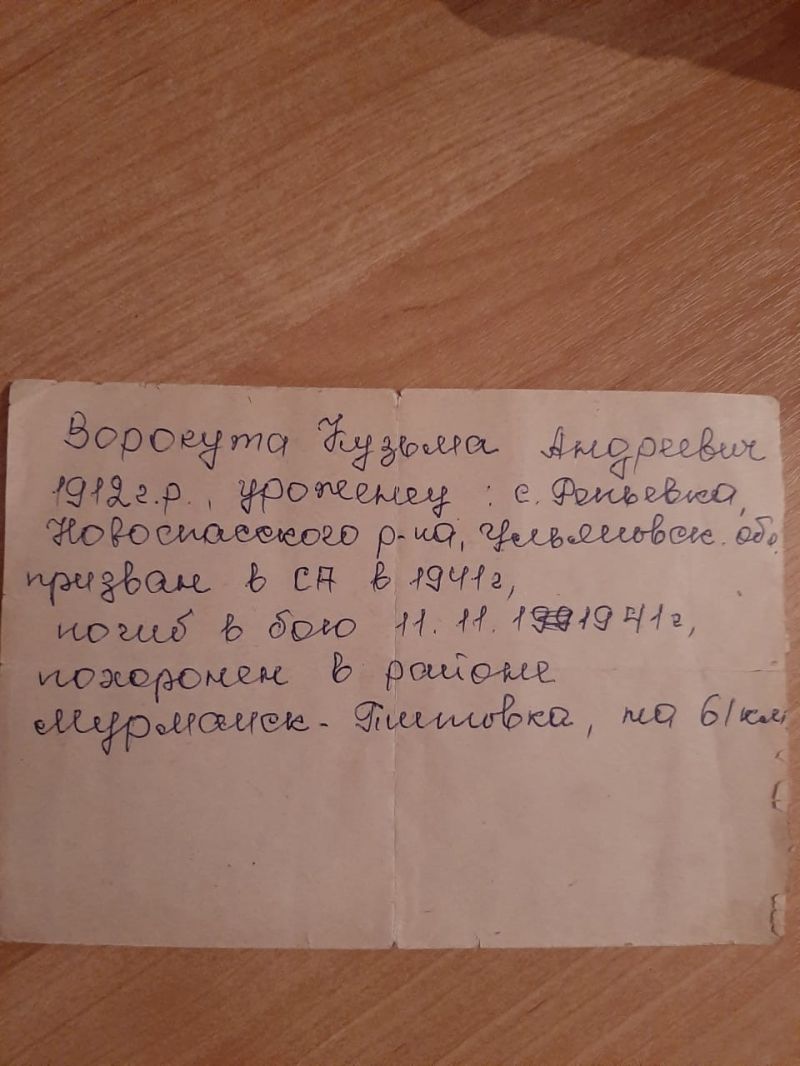 Ворокута Кузьма Андреевич
1912г.р., уроженец: с. Репьевка,
Новоспасского р-на, Ульяновск. обл.
призван в СА в 1941г,
погиб в бою 11. 11. 1941г,
похоронен в районе
Мурманск - Титовка, на 61км